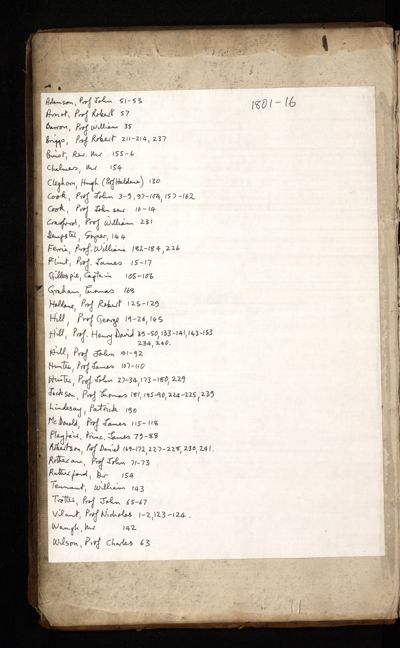 1801-16
Adamson, Prof John 51-53
Arnot, Prof Robert 57
Barron, Prof William 35
Briggs, Prof Robert 211-214, 237
Buist, Rev. Mr 155-6
Chalmers, Mr 154
Cleghorn, Hugh (Prof Haldane) 130
Cook, Prof John 3-9, 97-104, 157-162
Cook, Prof John 10-14
Crawford, Prof William 231
Dempster, 144
Ferrie, Prof. William 182-184, 226
Flint, Prof. James 15-17
Gillespie, Captain 105-106
Graham, Thomas 168
Haldane, Prof Robert 125-129
Hill, Prof George 19-26, 145
Hill, Prof. Henry David 39-50, 133-141, 143-153
234, 240.
Hill, Prof John 91-92
Hunter, Prof James 107-110
Hunter, Prof John 27-34, 173-180, 229
Jackson, Prof Thomas 181, 185-90, 224-225, 239
Lindesay, Patrick 190
McDonald, Prof James 115-118
Playfair, Princ. James 79-88
Robertson, Prof Daniel 169-172, 227-228, 230, 241.
Rotheram, Prof John 71-73
Rutherford, Dr. 154
Tennant, William 143
Trotter, Prof John 65-67
Vilant, Prof Nicholas 1-2, 123-124.
Waugh, Mr 142
Wilson, Prof Charles 63